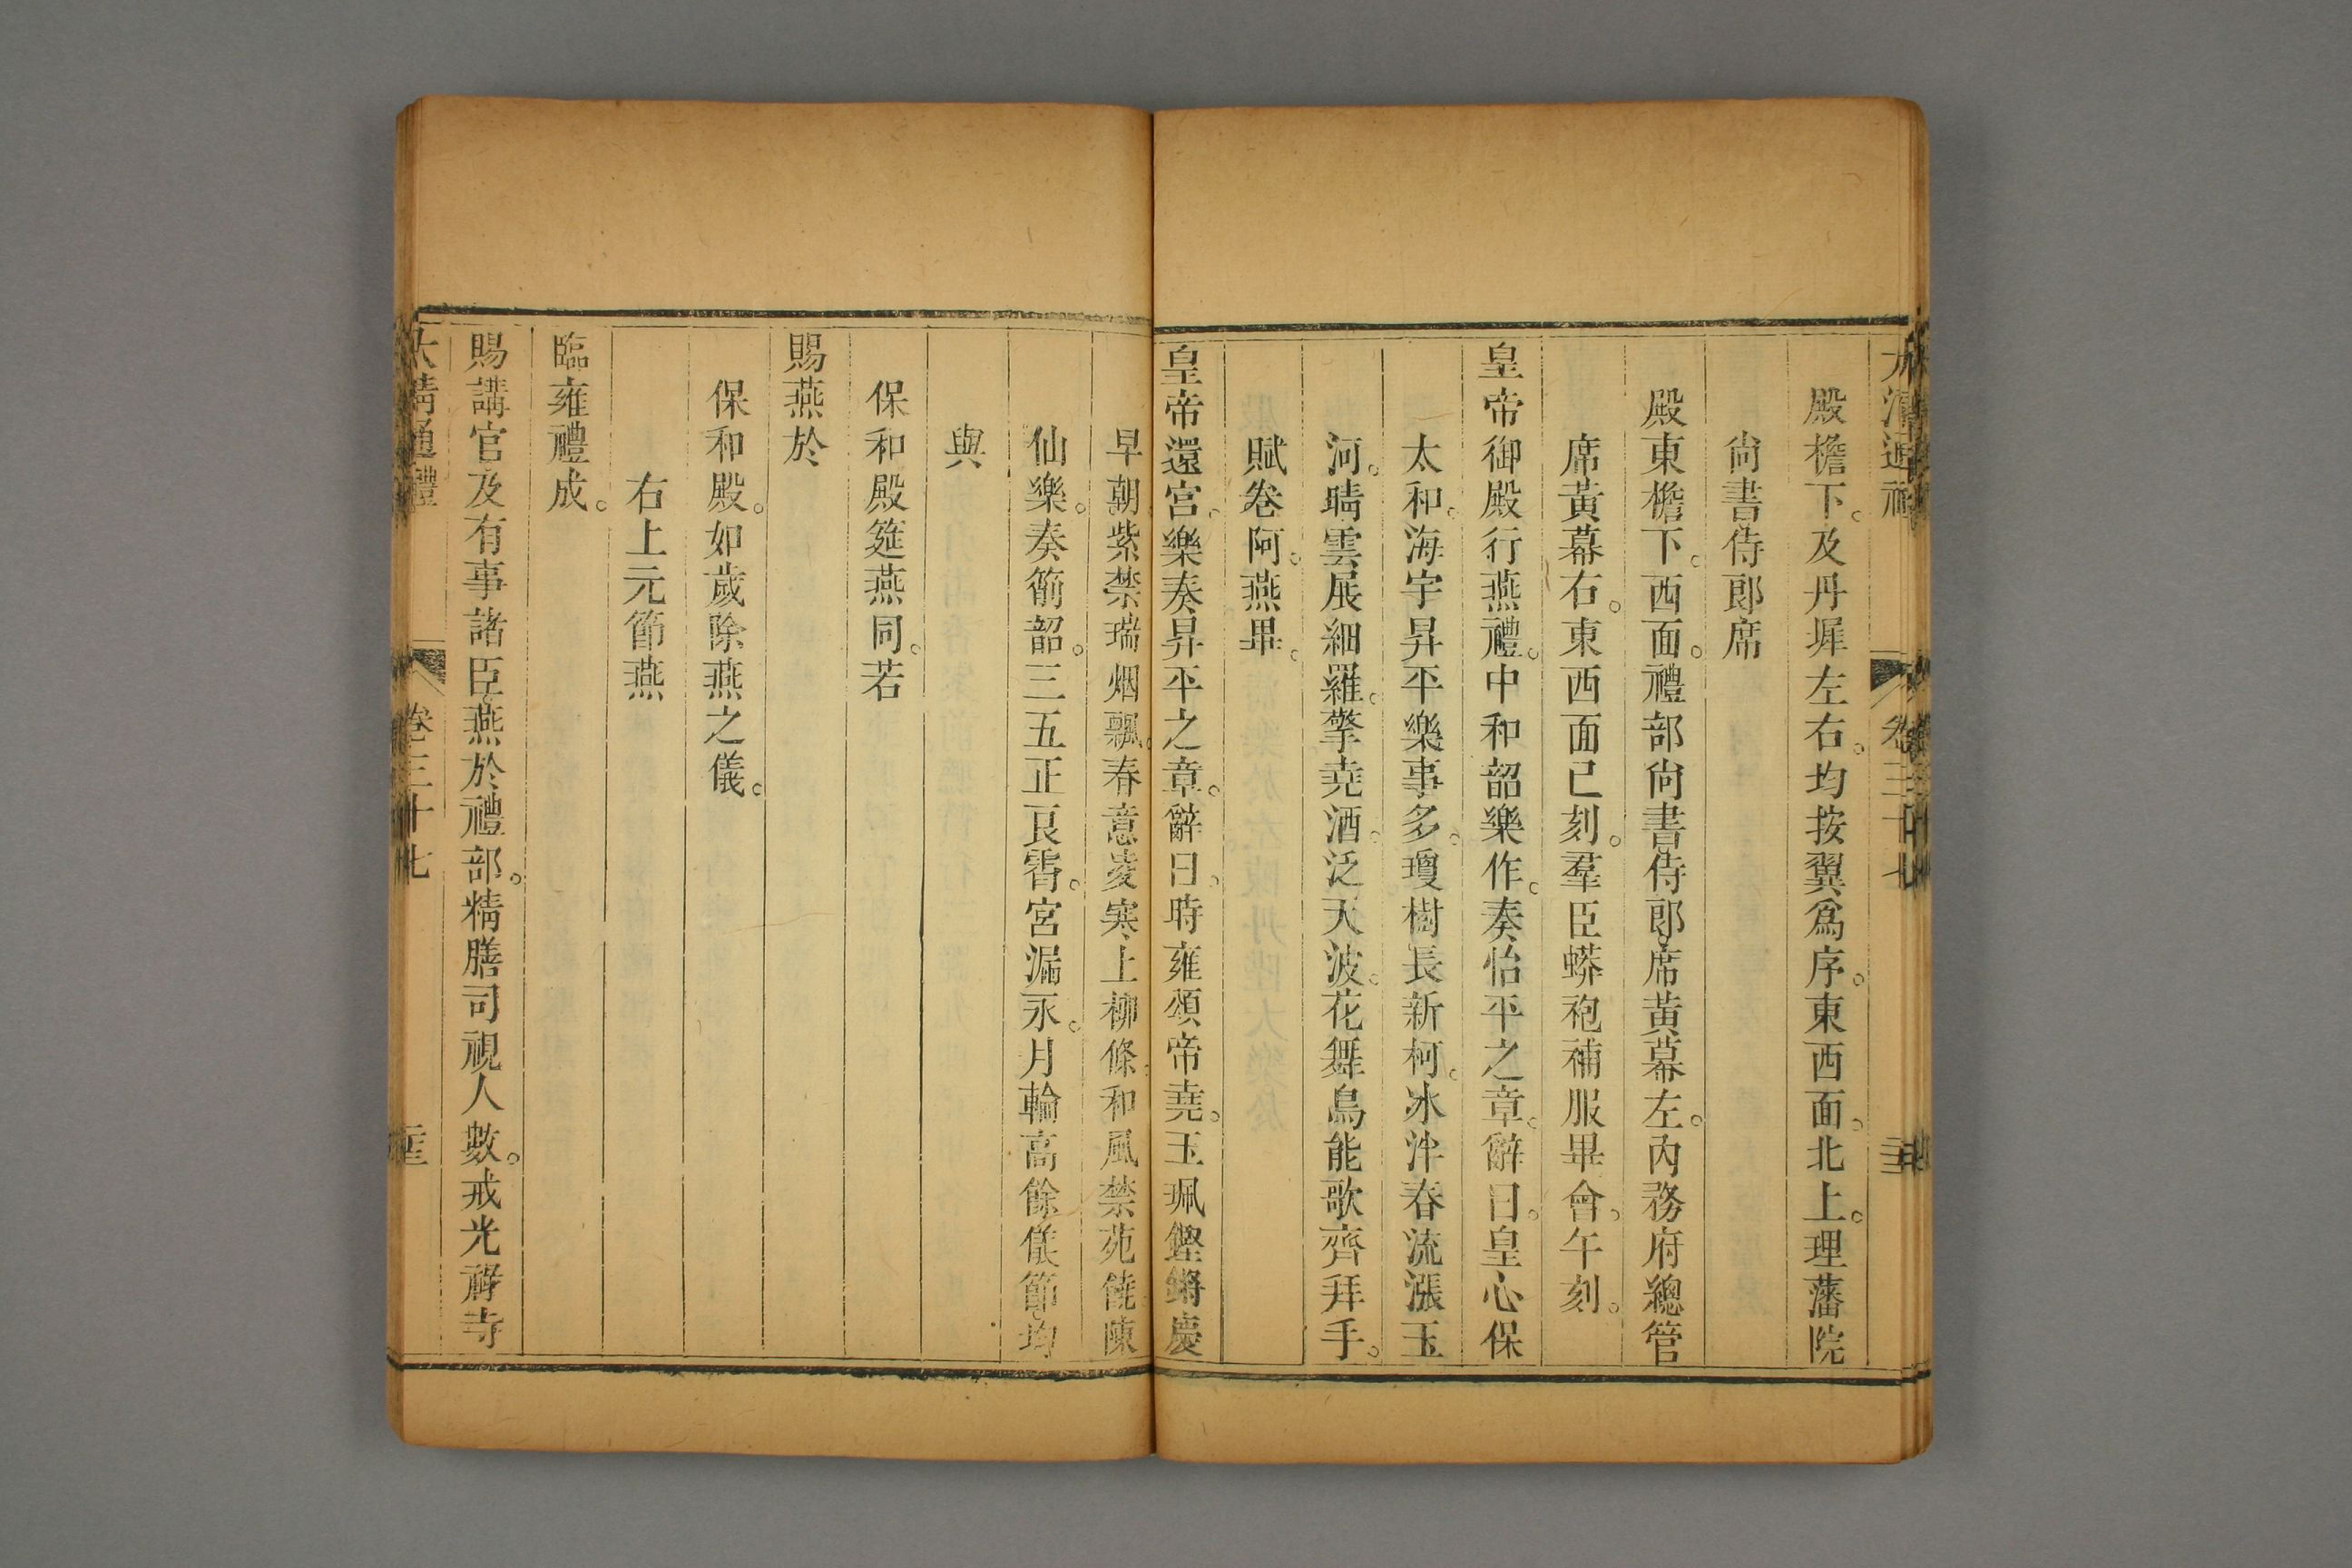 大清通禮 卷三十七
殿檐下。及丹墀左右。均按翼爲序。東西面。北上。理藩院
尙書侍郞席
殿東檐下。西面。禮部尙書侍郞席黃幕左。內務府總管
席黃幕右。東西面已刻。羣臣蟒袍補服畢會。午刻。
皇帝御殿行燕禮。中和韶樂作。奏怡平之章。辭曰。皇心保
太和。海宇昇平樂事多。瓊樹長新柯。冰泮春流漲玉
河。晴雲展細羅。擎堯酒。泛天波。花舞鳥能歌齊拜手。
賦卷阿。燕畢。
皇帝還宮。樂奏昇平之章。辭曰。時雍頌帝堯。玉珮鏗鏘慶
早朝紫禁瑞烟飄。春意凌寒上柳條。和風禁苑饒陳
仙樂。奏簫韶。三五正良霄。宮漏永。月輪高餘儀節均
與
保和殿筵燕同。若
賜燕於
保和殿。如歲除燕之儀。
右上元節燕
臨雍禮成。
賜講官及有事諸臣。燕於禮部。精膳司視人數。戒光祿寺
大清通禮 卷三十七